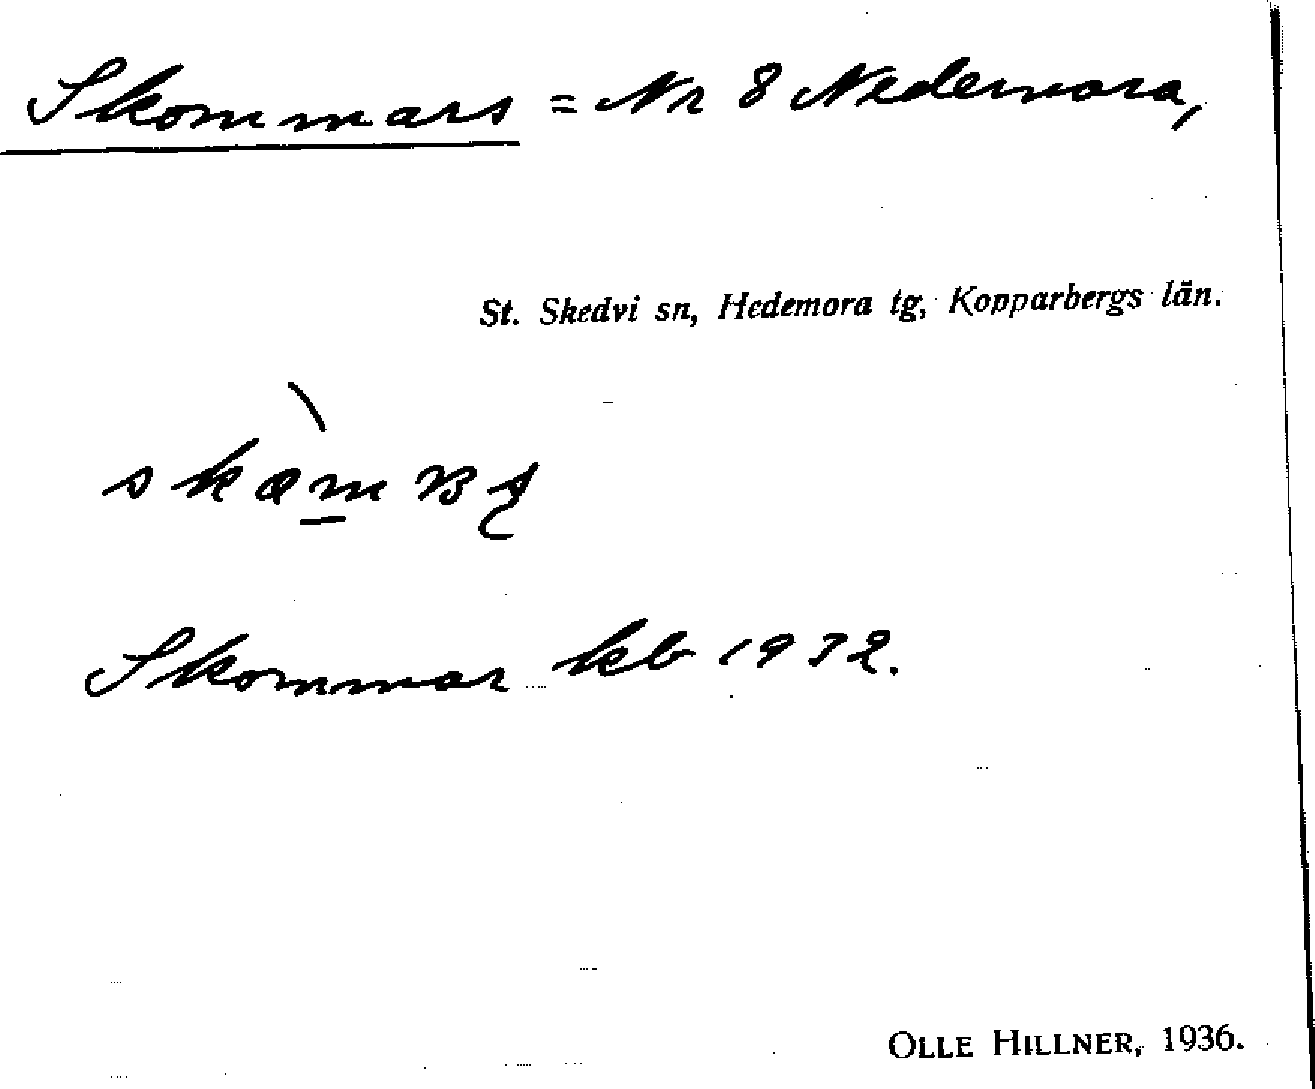 Skommars = Nr 8 Nedernora,
St. Skedvi sn, Hedemora tg, Kopparbergs län.
Skommar kb 1932.
OLLE HILLNER, 1936.